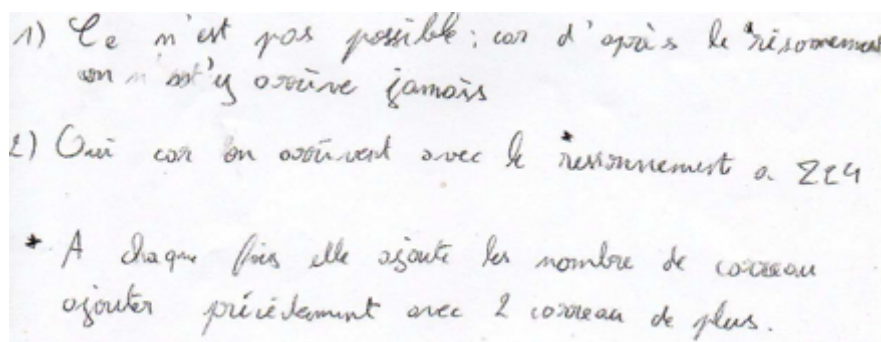 1) Ce n'est pas possible ; car d'après le *résonnement
on n' est'y arrive jamais
2) Oui car on arrivent avec le *ressonnement a 224
* A chaque fois elle ajoute les nombre de carreau
ajouter précédamment avec 2 carreau de plus.